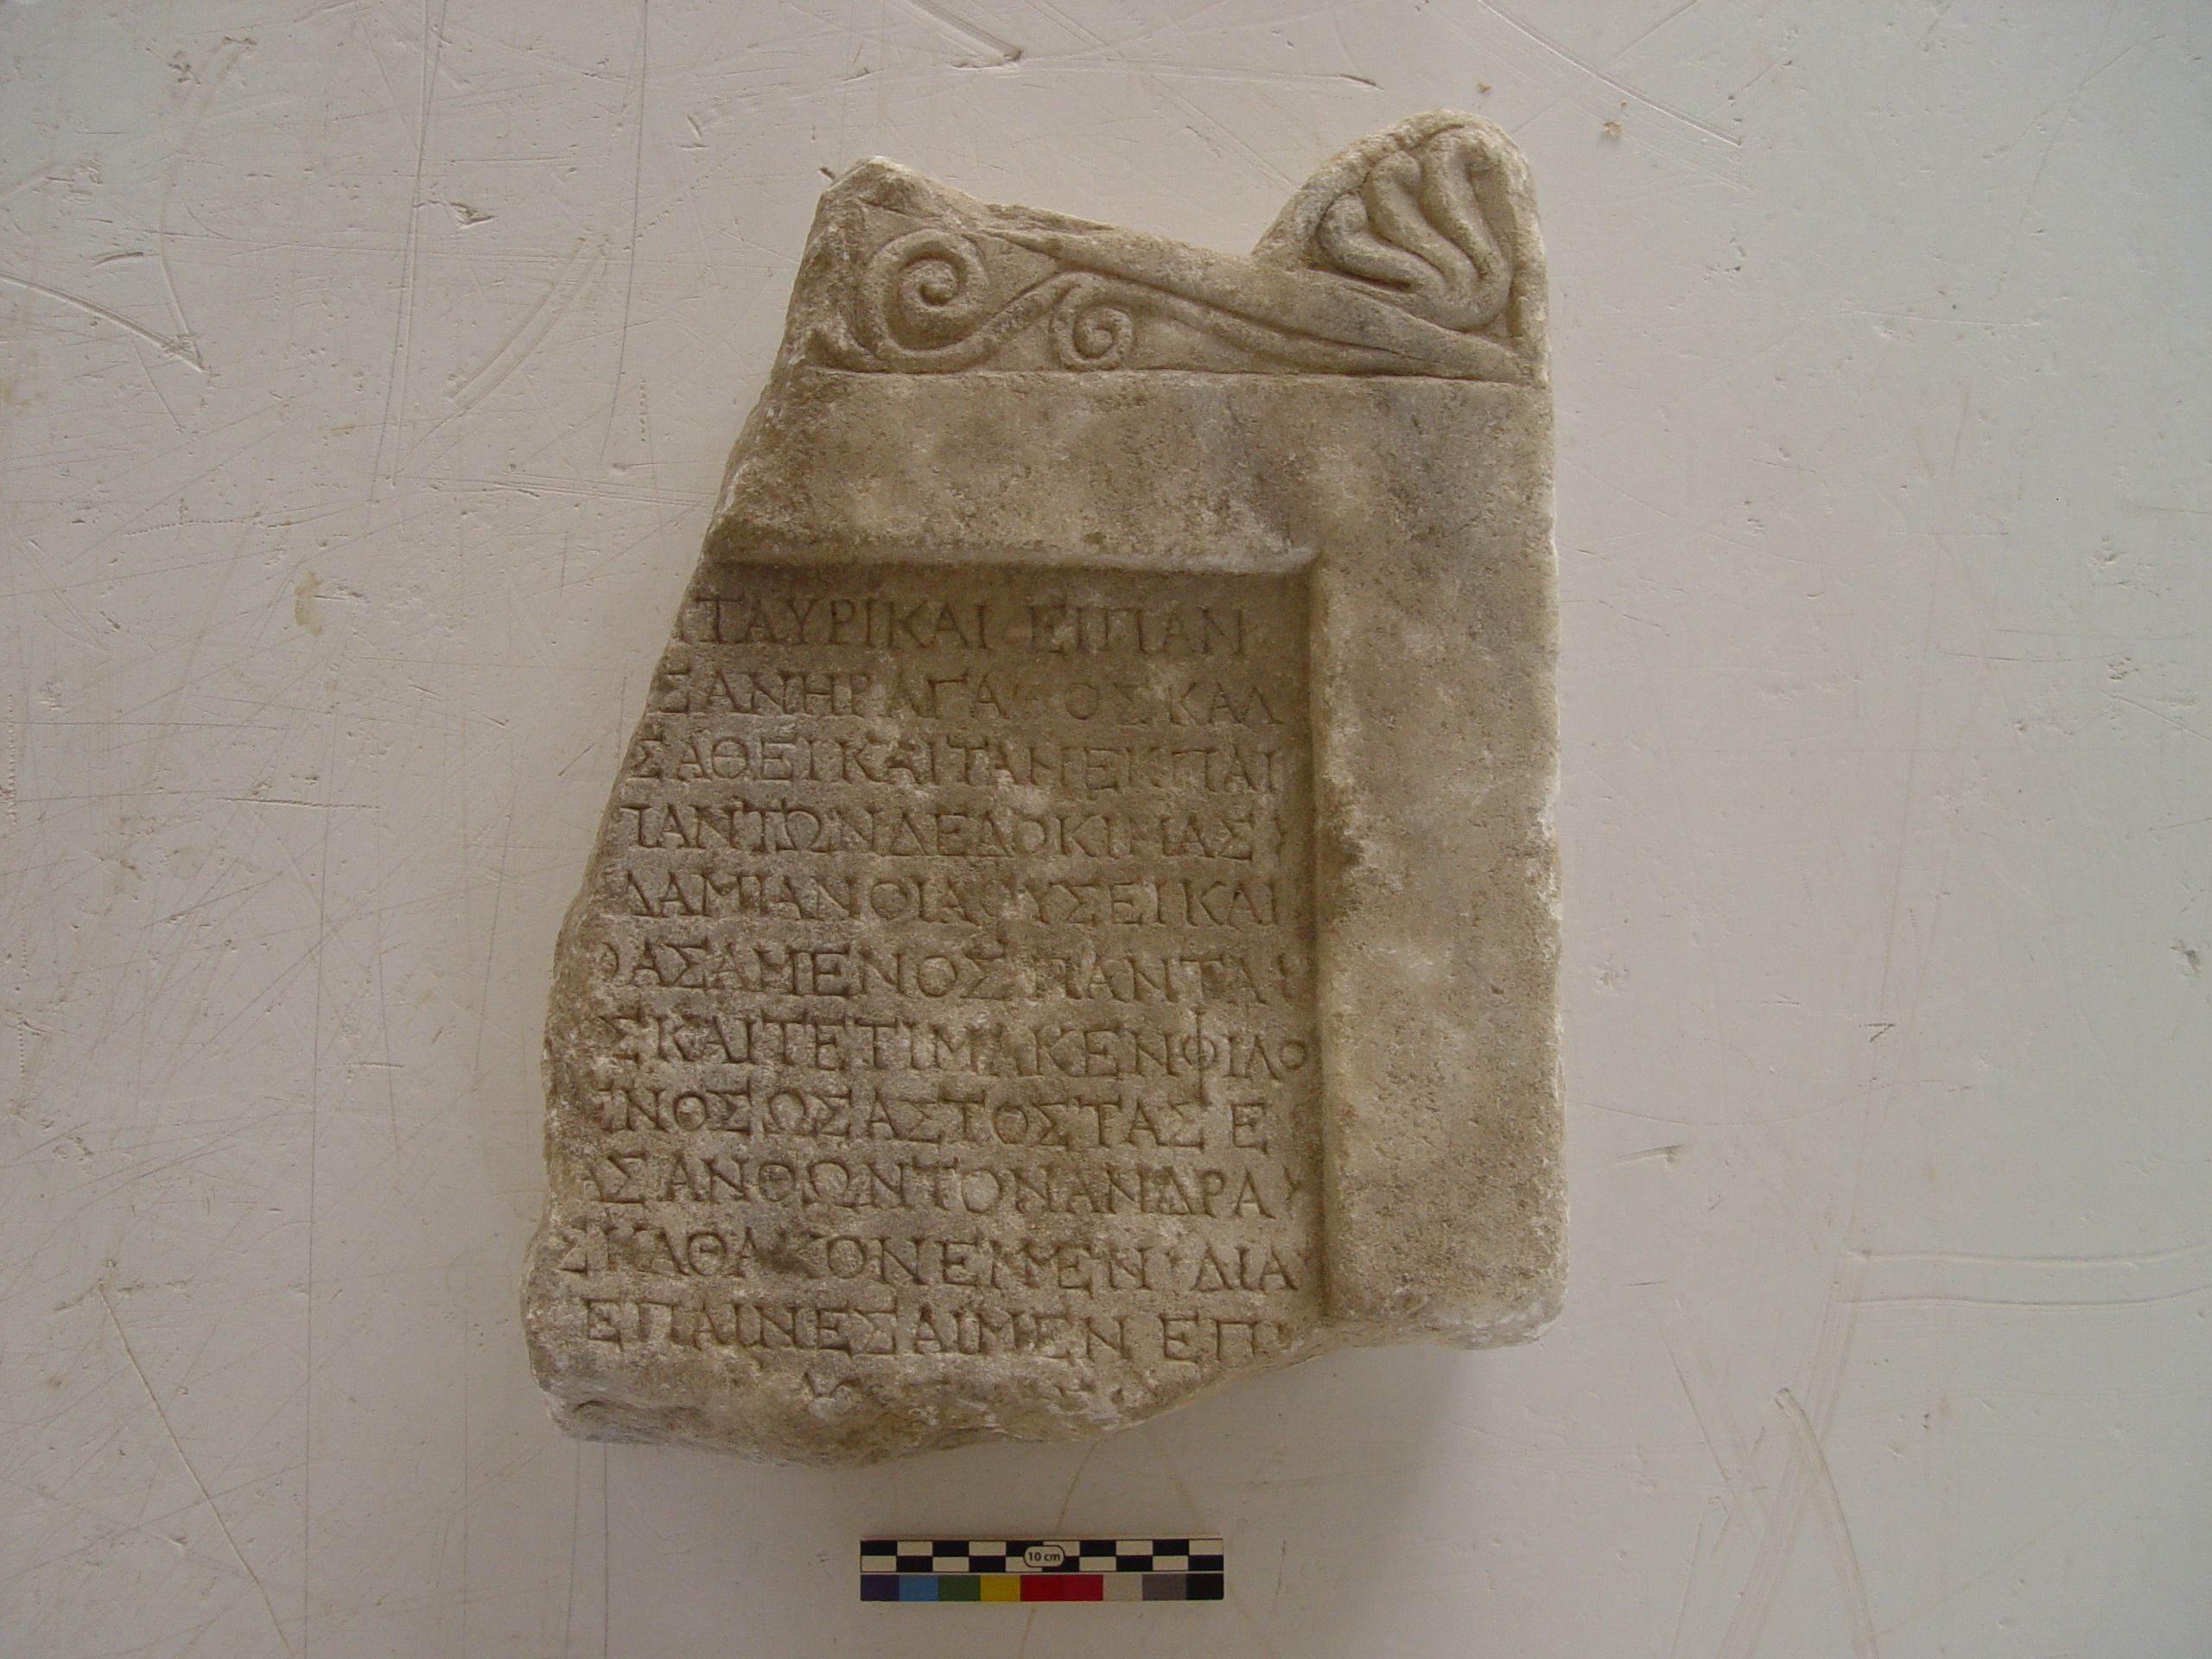 ΙΤΑΥΡΙΚΑΙ ΕΙΠΑΝ
ΣΑΝΗΡΑΓΑΘΟΣΚΑΛ
ΣΑΘΕΙΚΑΙΤΑΝΕΚΠΑΙ
ΠΑΝΤΩΝΔΕΔΟΚΙΜΑΣ
ΔΑΜΙΑΝΘΙΑΦΥΣΕΙΚΑΙ
ΑΣΑΜΕΝΟΣΠΑΝΤΑ
ΣΚΑΙΤΕΤΙΜΑΚΕΝΦΙΛΟ
ΕΝΟΣΩΣΑΣΤΟΣΤΑΣ Ε
ΑΣΑΝΘΩΝΤΟΝΑΝΔΡΑ
ΣΚΑΘΑΚΟΝΕΜΜΕΝ ΔΙΑ
ΕΠΑΙΝΕΣΑΙΜΕΝ ΕΠ
10 cm